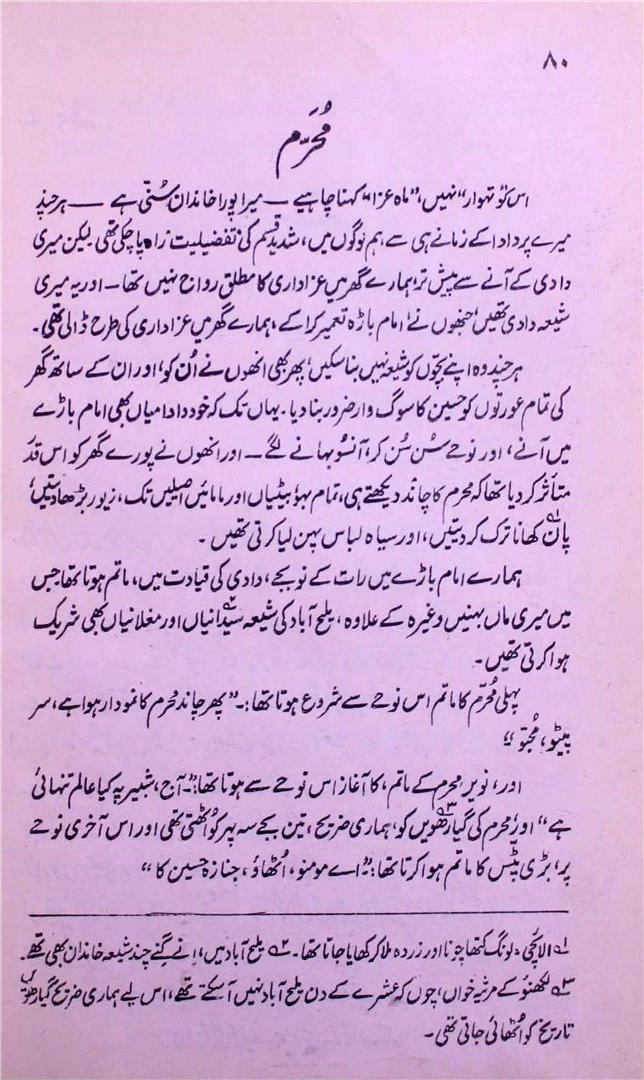 ۸۰
مُحَرّم
اس کو "تہوار" نہیں، "ماہِ عزا" کہنا چاہیے — میرا پورا خاندان سُنّی ہے — ہر چند
میرے پر دادا کے زمانے ہی سے، ہم لوگوں میں، شدید قسم کی تفضیلیت راہ پا چکی تھی لیکن میری
دادی کے آنے سے پیش تر، ہمارے گھر میں عزاداری کا مطلق رواج نہیں تھا۔ اور یہ میری
شیعہ دادی تھیں، جنھوں نے، امام باڑہ تعمیر کرا کے، ہمارے گھر میں عزاداری کی طرح ڈالی تھی۔
ہر چند وہ اپنے بچّوں کو شیعہ نہیں بنا سکیں، پھر بھی انھوں نے اُن کو، اور ان کے ساتھ گھر
کی تمام عورتوں کو حسین کا سوگ وار ضرور بنا دیا۔ یہاں تک کہ خود دادا میاں بھی امام باڑے
میں آنے، اور نوحے سُن سُن کر، آنسو بہانے لگے — اور انھوں نے پورے گھر کو اس قدر
متاثر کر دیا تھا کہ محرم کا چاند دیکھتے ہی، تمام بہو بیٹیاں اور مامائیں اصیلیں تک، زیور بڑھا دیتیں،
پان۱؎ کھانا ترک کر دیتیں، اور سیاہ لباس پہن لیا کرتی تھیں۔
ہمارے امام باڑے میں رات کے نو بجے، دادی کی قیادت میں، ماتم ہوتا تھا جس
میں میری ماں بہنیں وغیرہ کے علاوہ، ملیح آباد کی شیعہ۲؎ سیّدانیاں اور مغلانیاں بھی شریک
ہوا کرتی تھیں۔
پہلی مُحرّم کا ماتم اس نوحے سے شروع ہوتا تھا:۔ "پھر چاند محرم کا نمودار ہوا ہے، سر
پیٹو، مُحبّو"
اور، نویں محرم کے ماتم، کا آغاز اس نوحے سے ہوتا تھا:۔ "آج، شبیر پہ کیا عالمِ تنہائی
ہے" اور محرم کی گیارھویں۳؎ کو، ہماری ضریح، تین بجے سہ پہر کو اُٹھتی تھی اور اس آخری نوحے
پر، بڑی ٹیس کا ماتم ہوا کرتا تھا:۔ "اے مومنو، اُٹھاؤ، جنازہ حسین کا"
۱؎ الائچی، لونگ کتھا چونا اور زردہ ملا کر کھایا جاتا تھا۔ ۲؎ ملیح آباد میں، اِنے گِنے چند شیعہ خاندان بھی تھے۔
۳؎ لکھنؤ کے مرثیہ خواں، چوں کہ عشرے کے دن ملیح آباد نہیں آ سکتے تھے، اس لیے ہماری ضریح گیارھویں کی
تاریخ کو اُٹھائی جاتی تھی۔